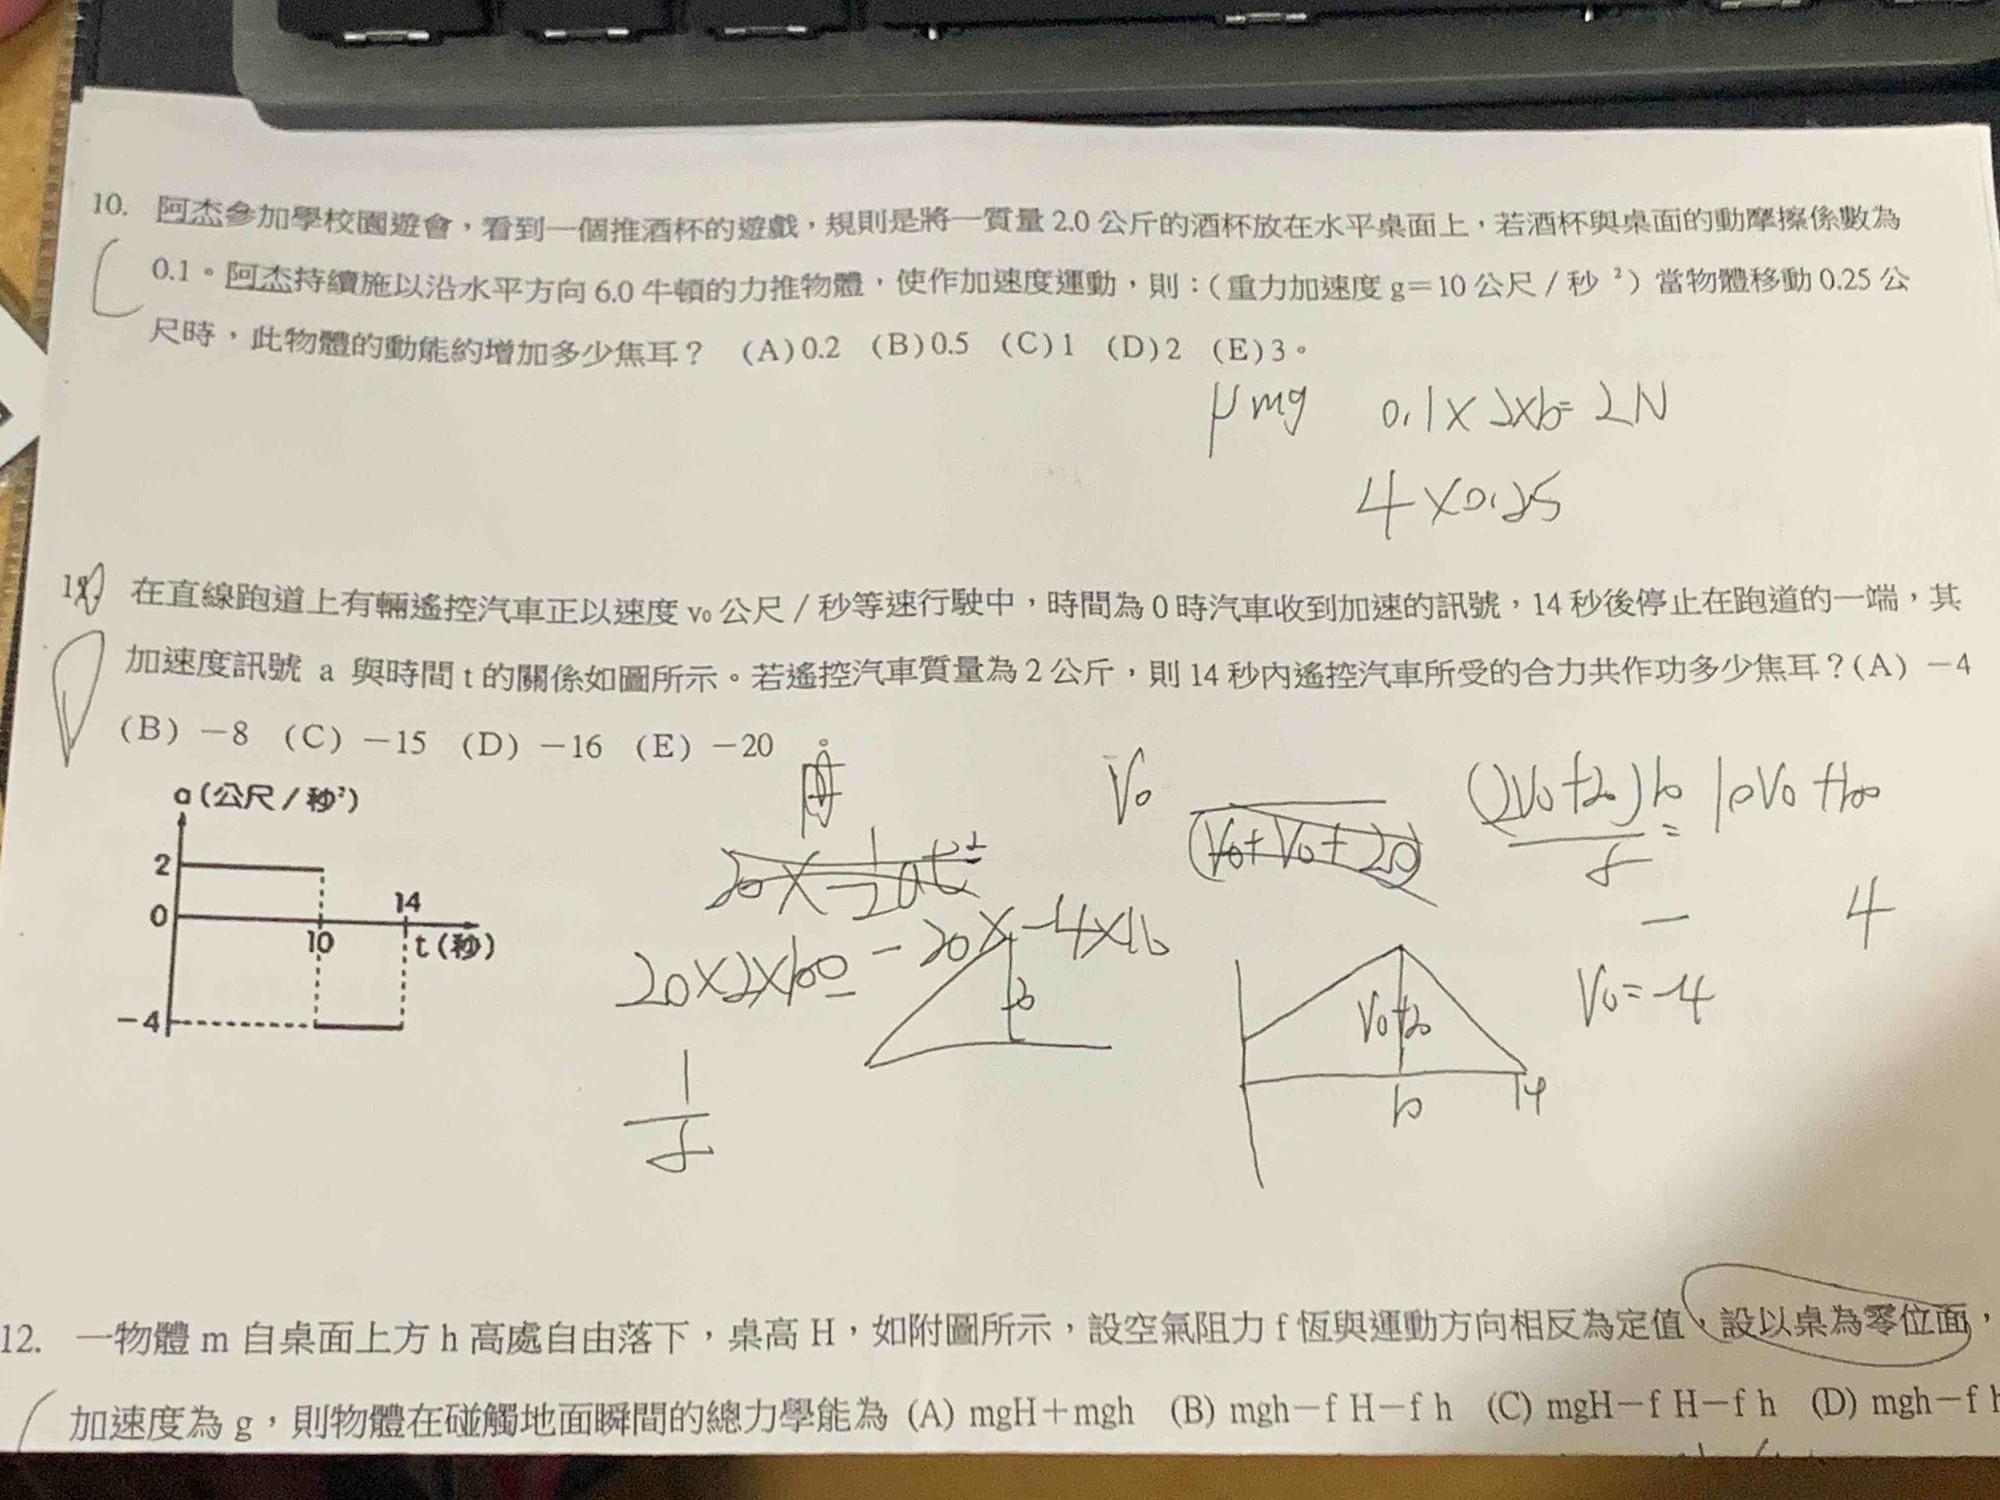 10. 阿杰參加學校園遊會，看到一個推酒杯的遊戲，規則是將一質量 2.0 公斤的酒杯放在水平桌面上，若酒杯與桌面的動摩擦係數為
0.1。阿杰持續施以沿水平方向 6.0 牛頓的力推物體，使作加速度運動，則：(重力加速度 g＝10 公尺 / 秒 ²) 當物體移動 0.25 公
尺時，此物體的動能約增加多少焦耳？ (A) 0.2 (B) 0.5 (C) 1 (D) 2 (E) 3。
μmg 0.1×2×10=2N
4×0.25
在直線跑道上有輛遙控汽車正以速度 v₀ 公尺 / 秒等速行駛中，時間為 0 時汽車收到加速的訊號，14 秒後停止在跑道的一端，其
加速度訊號 a 與時間 t 的關係如圖所示。若遙控汽車質量為 2 公斤，則 14 秒內遙控汽車所受的合力共作功多少焦耳？(A) －4
(B) －8 (C) －15 (D) －16 (E) －20 。
a (公尺 / 秒²)
2
0
10
14
t (秒)
－4
V₀
(V₀+V₀+20)
(2V₀+20)10
2
= 10V₀+100
20×½at²
20×2×100 - 20×-4×16
1
2
V₀+20
10
14
－ 4
V₀=-4
12. 一物體 m 自桌面上方 h 高處自由落下，桌高 H，如附圖所示，設空氣阻力 f 恆與運動方向相反為定值，設以桌為零位面，
加速度為 g，則物體在碰觸地面瞬間的總力學能為 (A) mgH＋mgh (B) mgh－f H－f h (C) mgH－f H－f h (D) mgh－f h